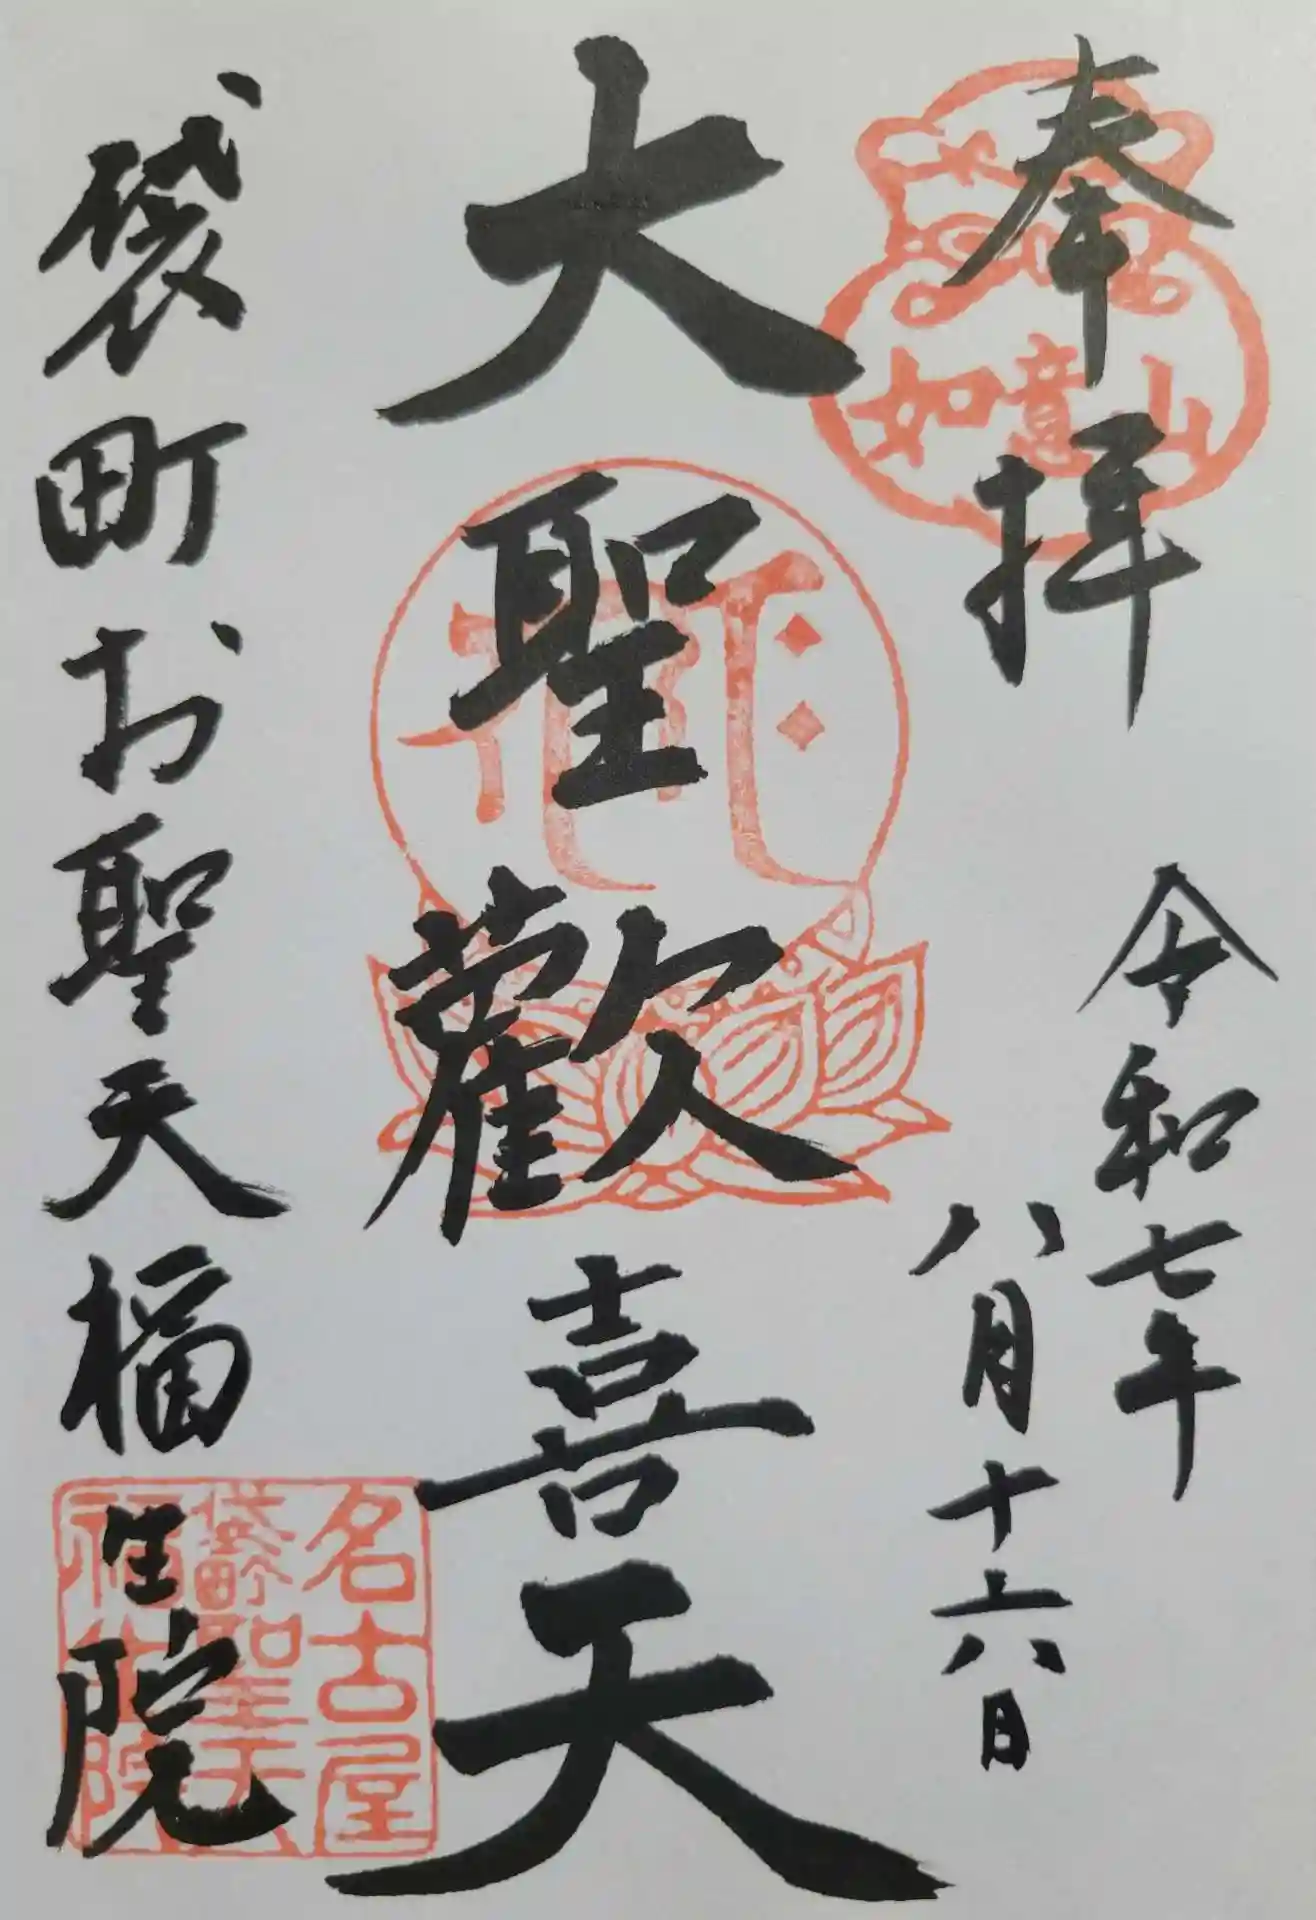 奉拝
如意山
令和七年
八月十六日
大聖歓喜天
名古屋
袋町聖天
福生院
袋町お聖天福生院